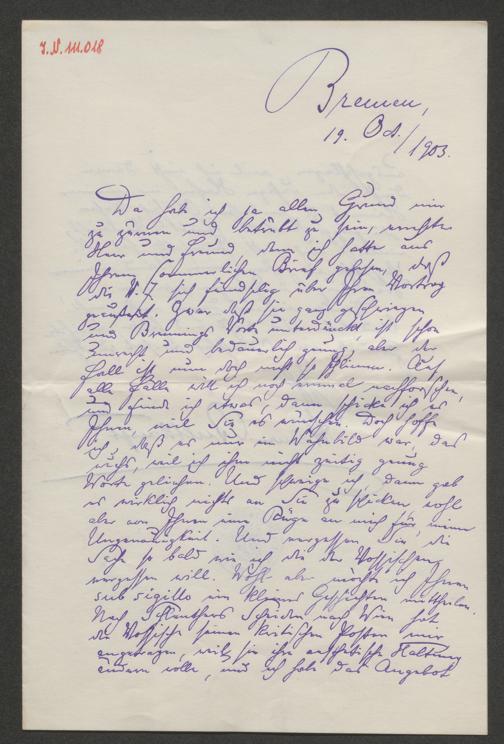 I.N. 111.018
Bremen,
19. Oct./1903.
Da habe ich ja allen Grund mir
zu zürnen und betrübt zu sein, verehrter
Herr und Freund, denn ich hatte aus
Ihrem sommerlichen Brief gesehen, daß
die N. Z. sich feindselig über Ihren Vortrag
geäußert. Zwar daß sie ganz geschwiegen
und Brennings Vorte unterdrückt ist schon
unrecht und bedauerlich genug, aber der
Fall ist nun doch nicht so schlimm. Auf
alle Fälle will ich noch einmal nachforschen,
und finde ich etwas, dann schicke ich es
Ihnen, weil Sie es wünschen. Doch hoffe
ich, daß es nur ein Wahnbild war, das
wuchs, weil ich ihm nicht zeitig genug
Worte geliehen. Und schweige ich, dann gab
es wirklich nichts an Sie zu schicken, wohl
aber von Ihnen eine Rüge an mich für meine
Ungenauigkeit. Und vergessen Sie die
Sache so bald wie ich die der Vossischen
vergessen will. Wohl aber möchte ich Ihnen
sub sigillo ein kleines Geschichten mittheilen.
Nach Schlenthers Scheiden nach Wien hat
die Vossische seinen kritischen Posten mir
angetragen, weil sie ihre ästhetische Haltung
ändern wolle, und ich habe das Angebot